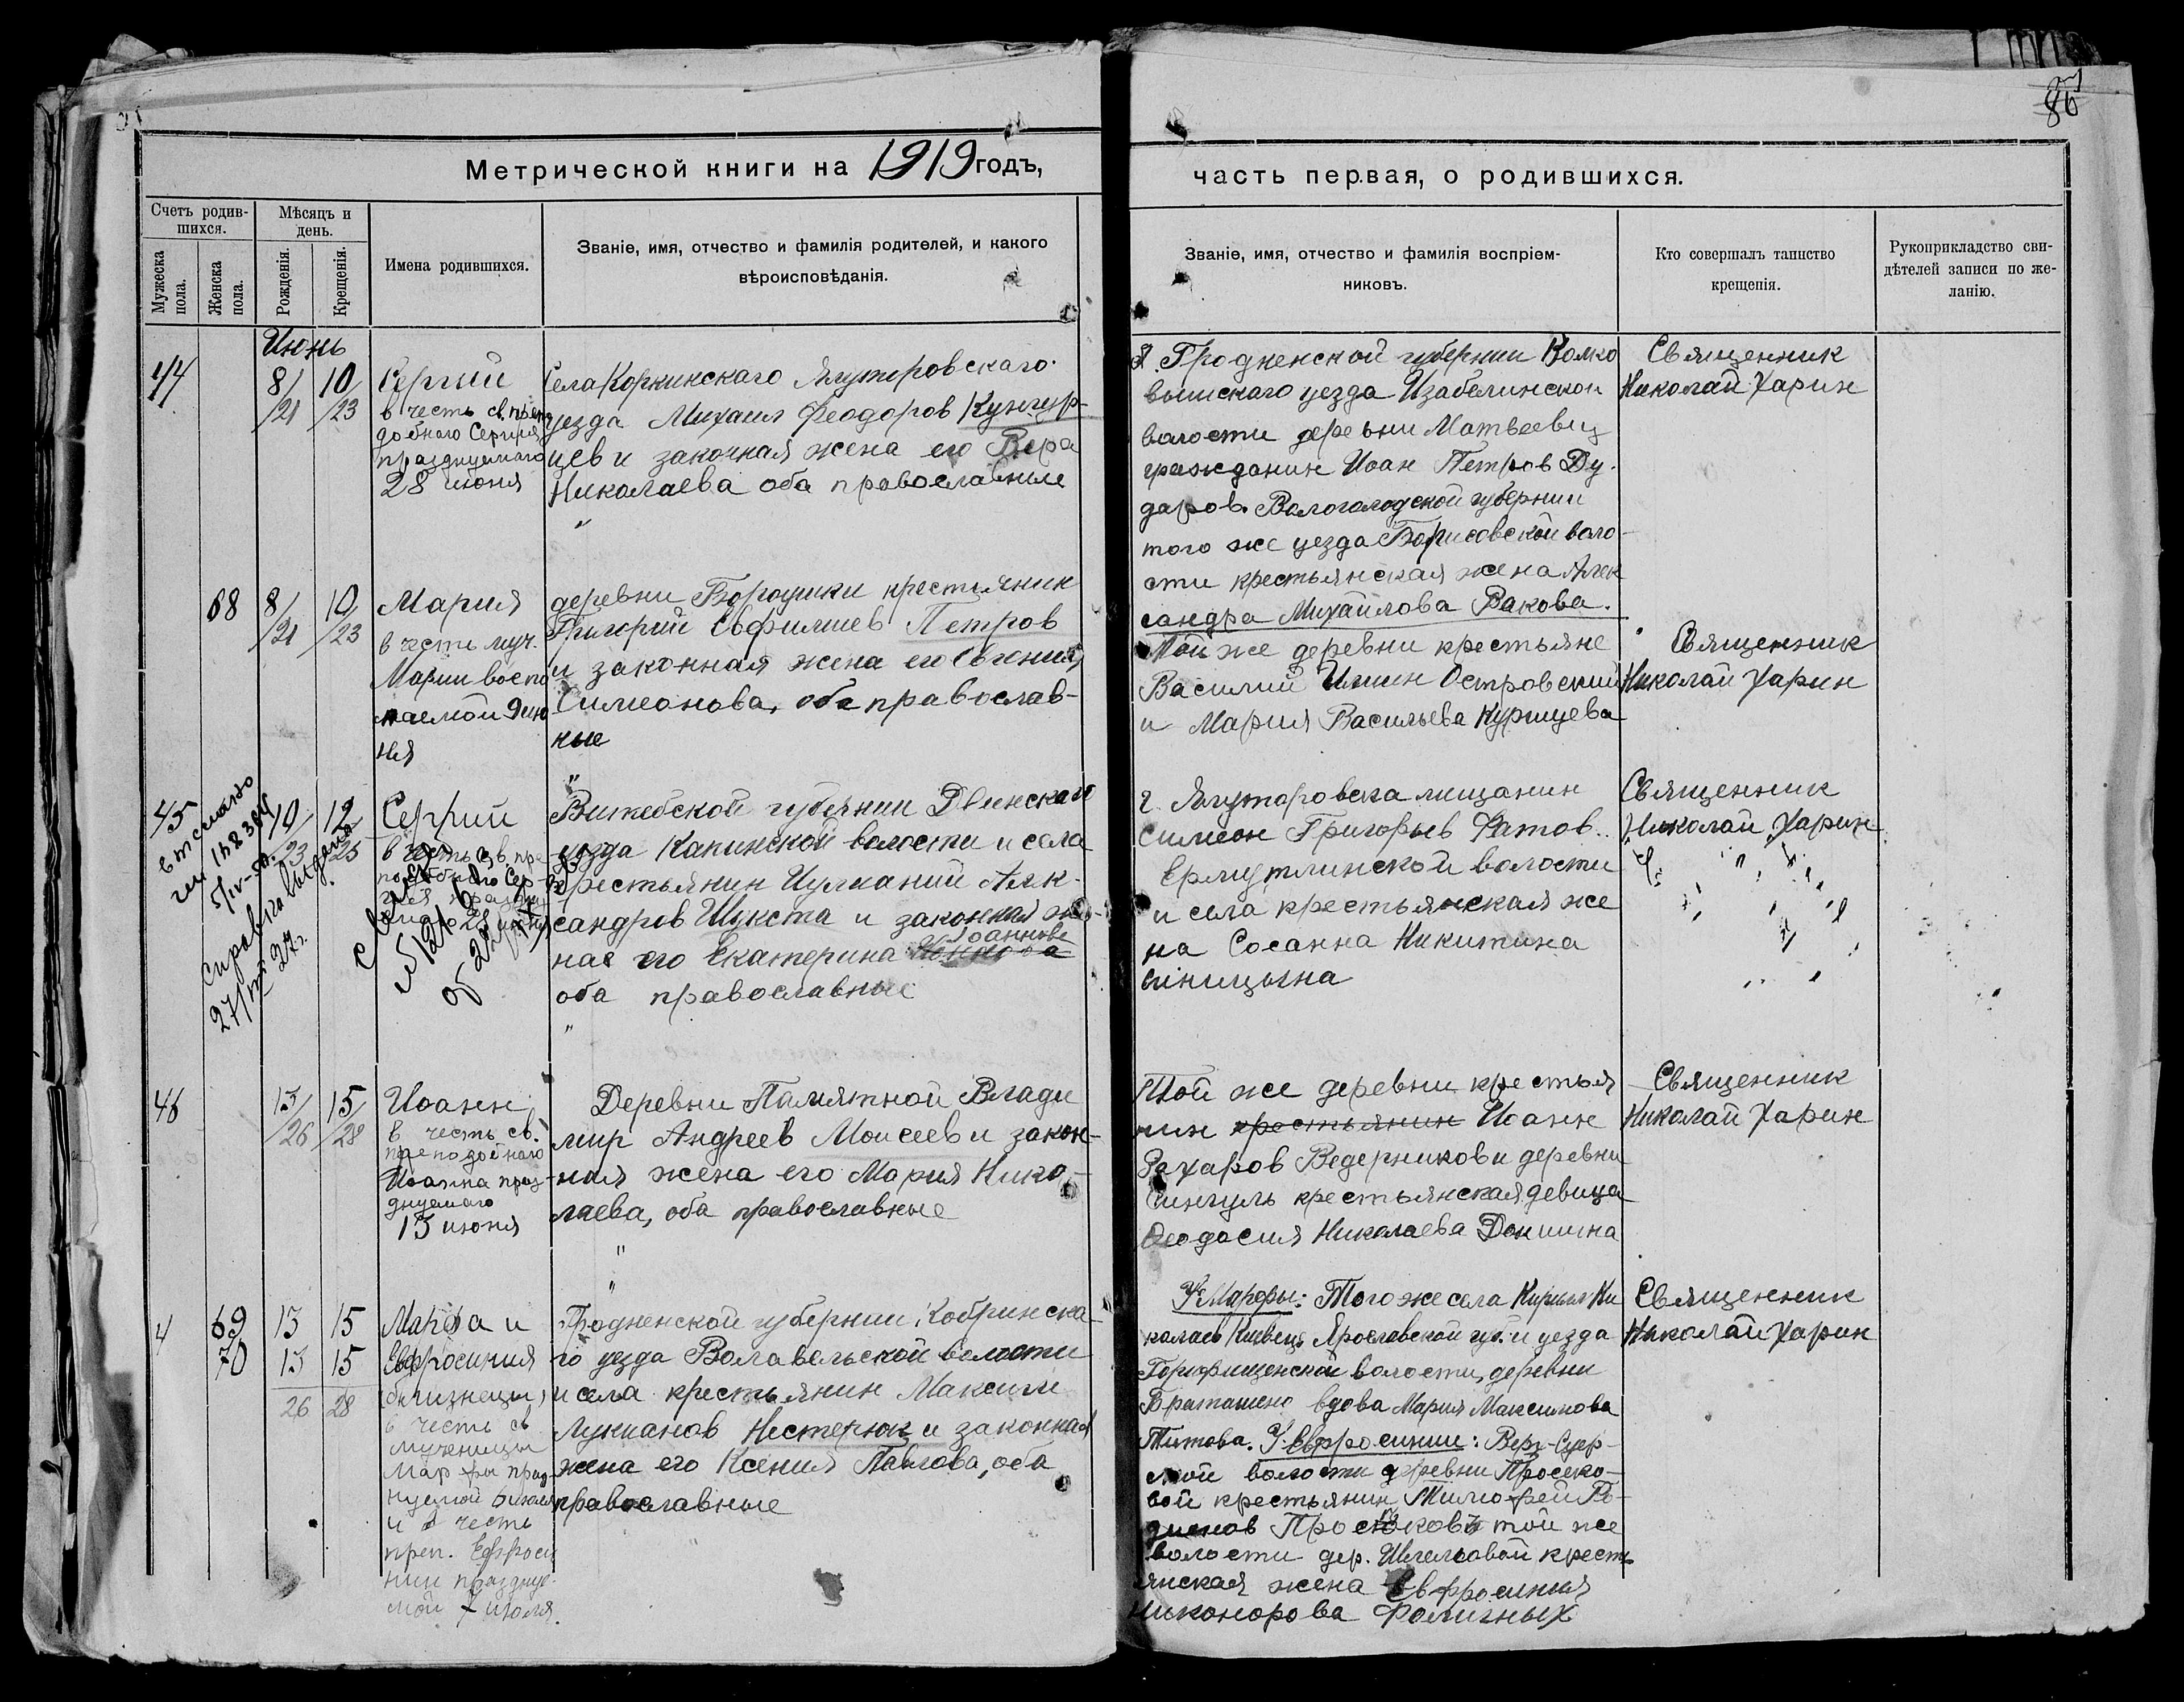 86
Метрической книги на 1919 годъ,
часть первая, о родившихся.
Счетъ родившихся.
Мѣсяцъ и день.
Мужеска пола.
Женска пола.
Рожденія.
Крещенія.
Имена родившихся.
Званіе, имя, отчество и фамилія родителей, и какого
вѣроисповѣданія.
Званіе, имя, отчество и фамилія воспріем-
никовъ.
Кто совершалъ таинство
крещенія.
Рукоприкладство сви-
дѣтелей записи по же-
ланію.
Июнь
44
8/21
10/23
Сергий
в честь св. препо
добнаго Сергия
празднуемаго
28 июня
Села Коркинскаго Ялуторовскаго
уезда Михаил Феодоров Кунгур-
цев и законная жена его Вера
Николаева оба православные
Гродненской губернии Волко
выискаго уезда Изабелинской
волости деревни Матвеевц
гражданин Иоан Петров Ду-
даров. Вологолодской губернии
того же уезда Борисовской воло-
сти крестьянская жена Алек
сандра Михайлова Вакова.
Священник
Николай Харин
68
8/21
10/23
Мария
в честь муч.
Марии воспо
наемой 9 ию
ня
деревни Бородинки крестьянин
Григорий Евфимиев Петров
и законная жена его Евгения
Симеонова, оба православ-
ные
Той же деревни крестьяне
Василий Ильин Островский
и Мария Васильева Курицева
Священник
Николай Харин
45
10/23
12/25
Сергий
в честь св. пре
подобнаго Сер-
гия праздну
емаго 28 июня
Справка выдана
27/III 27 г.
Витебской губернии Двинскаго
уезда Капинской волости и села
крестьянин Иулианий Алек-
сандров Шукста и законная же-
на его Екатерина Иоаннова
оба православные
г. Ялуторовска мищанин
Симеон Григорьев Фатов.
Ермутлинской волости
и села крестьянская же
на Сосанна Никитина
Синицына
Священник
Николай Харин
46
13/26
15/28
Иоанн
в честь св.
преподобнаго
Иоанна праз-
днуемаго
15 июня
Деревни Памятной Влади
мир Андреев Моисеев и закон-
ная жена его Мария Нико-
лаева, оба православные
Той же деревни крестья
нин крестьянин Иоанн
Захаров Ведерников и деревни
Сингуль крестьянская девица
Феодосия Николаева Доншина
Священник
Николай Харин
4
69
13
15
70
13
15
26
28
Марфа и
Евфросиния
(близнецы)
в честь св
мученицы
Марфы празд
нуемой 6 июля
и в честь
преп. Евфроси
нии праздние-
мой 7 июля.
Гродненской губернии, Кобринска
го уезда Волавельской волости
и села крестьянин Максим
Лукианов Нестерюк и законная
жена его Ксения Павлова, оба
православные
У Марфы: Того же села Кирилл Ни
колаев Кивец, Ярославской губ. и уезда
волости, деревни
Браташено вдова Мария Максимова
Титова. У Евфросинии: Верх-Суер-
ской волости деревни Просеко-
вой крестьянин Тимофей Ро-
дионов Просековъ той же
волости дер. крестьЯ
янская жена Евфросиния
Никонорова Фоминых
Священник
Николай Харин